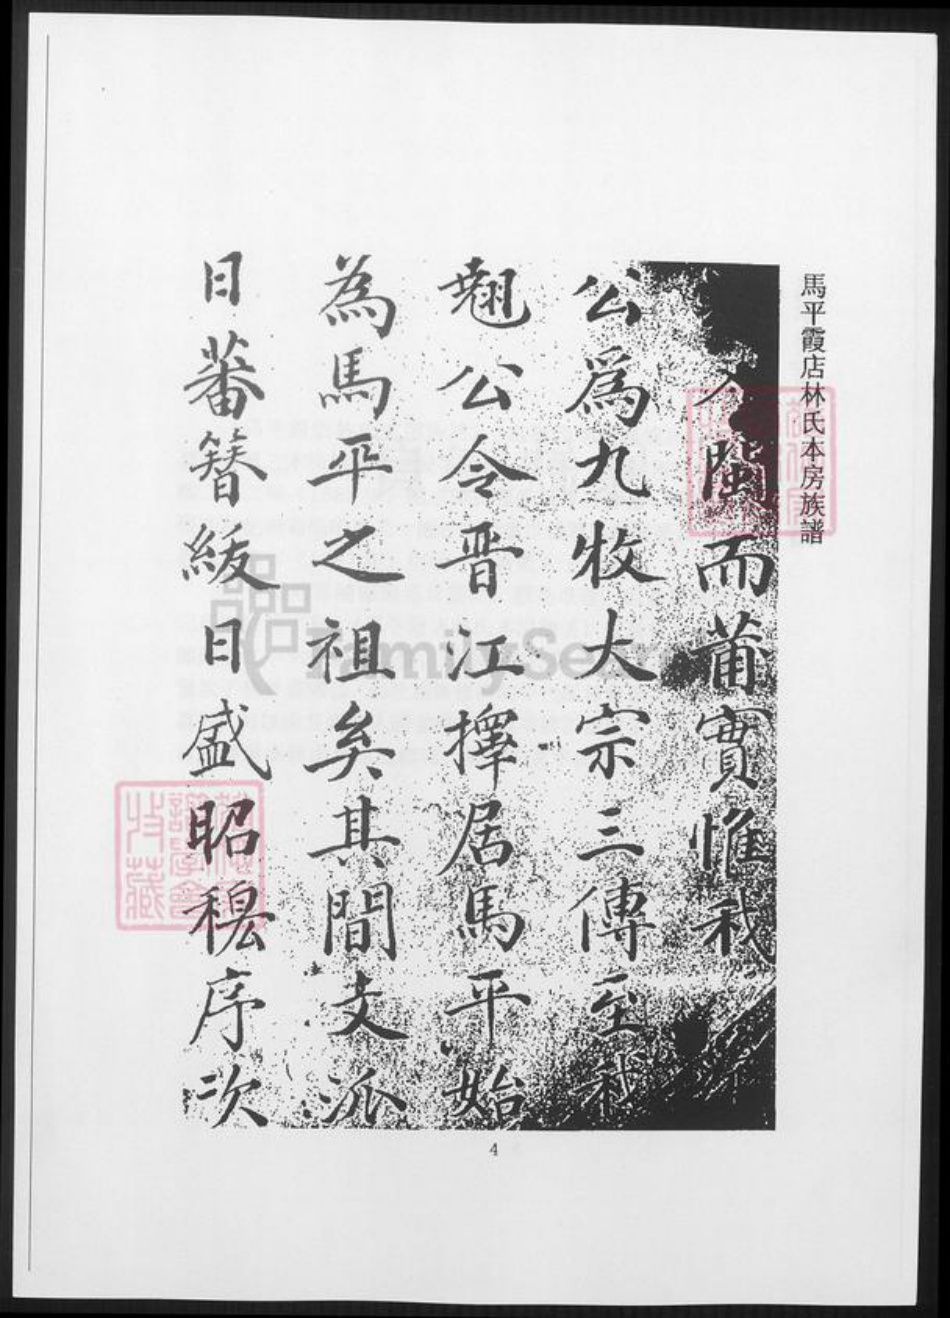 馬平霞店林氏本房族譜
入閩而莆實惟我
公爲九牧大宗三傳至我
翹公令晋江擇居馬平始
為馬平之祖矣其間支派
日蕃簪綬日盛昭穆序次
4
FamilySearch